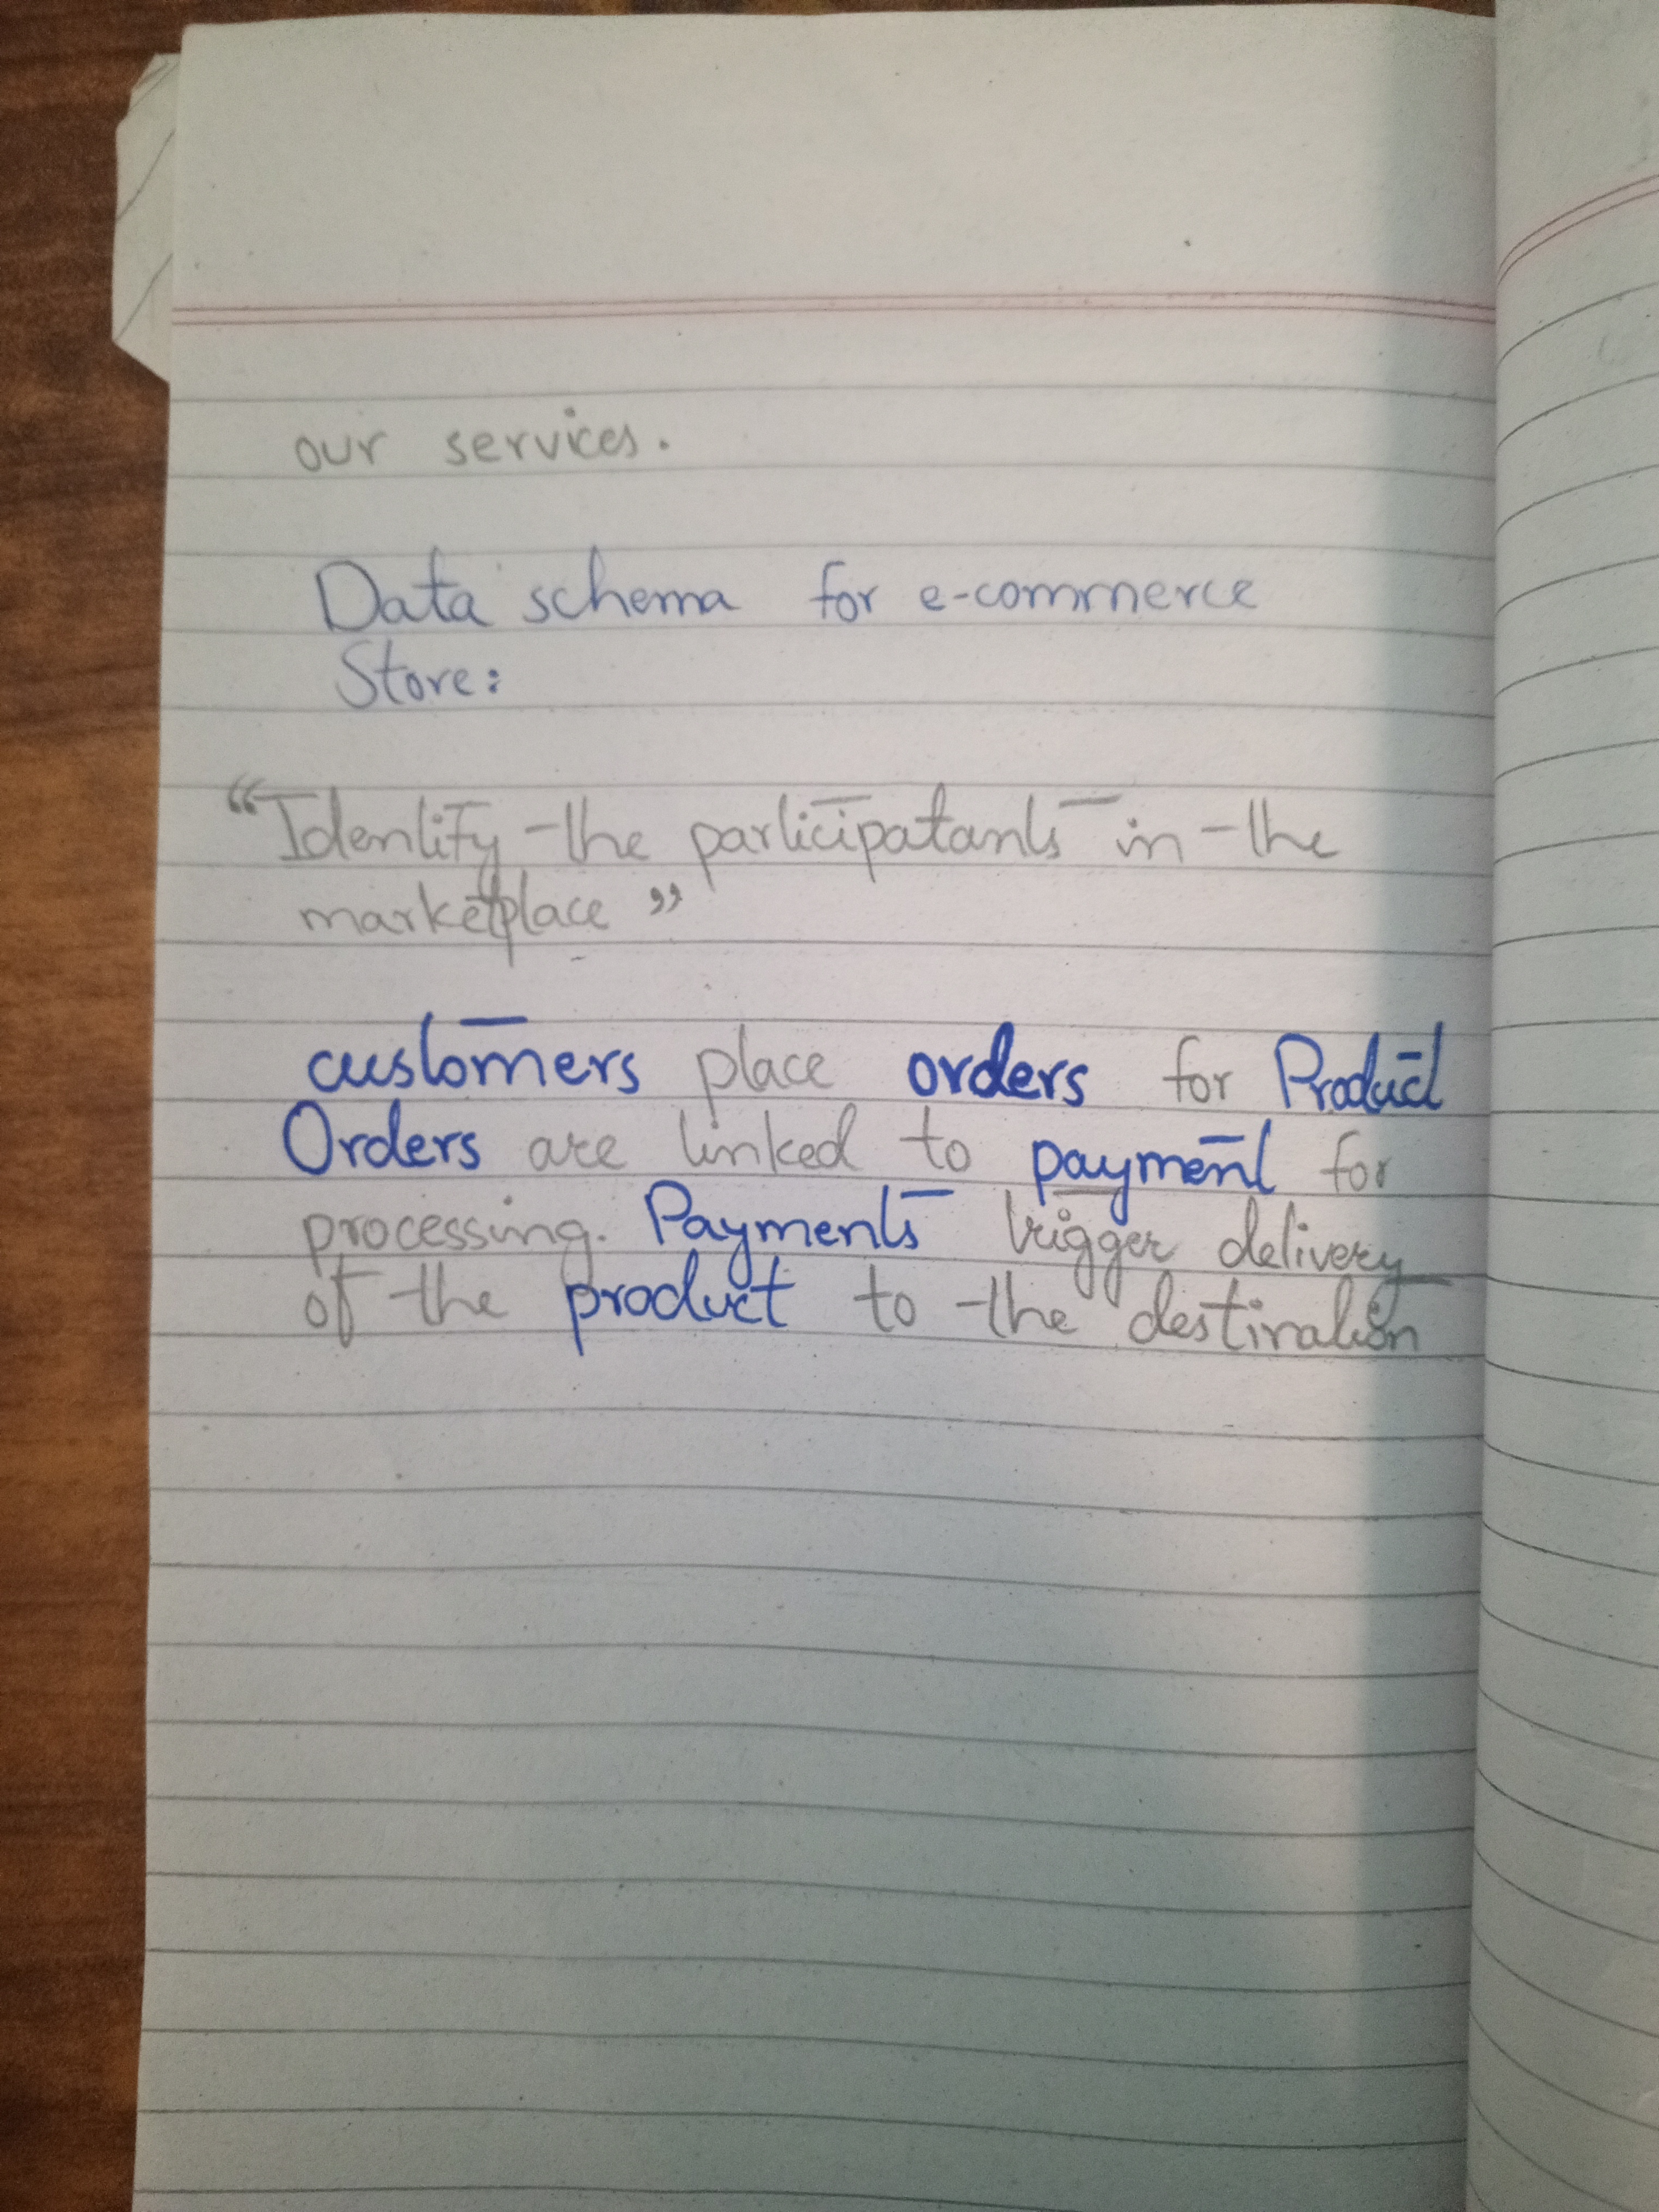 our services.
Data schema for e-commerce
Store:
“Identify the participatants in the
marketplace”
customers place orders for Product
Orders are linked to payment for
processing. Payments trigger delivery
of the product to the destination